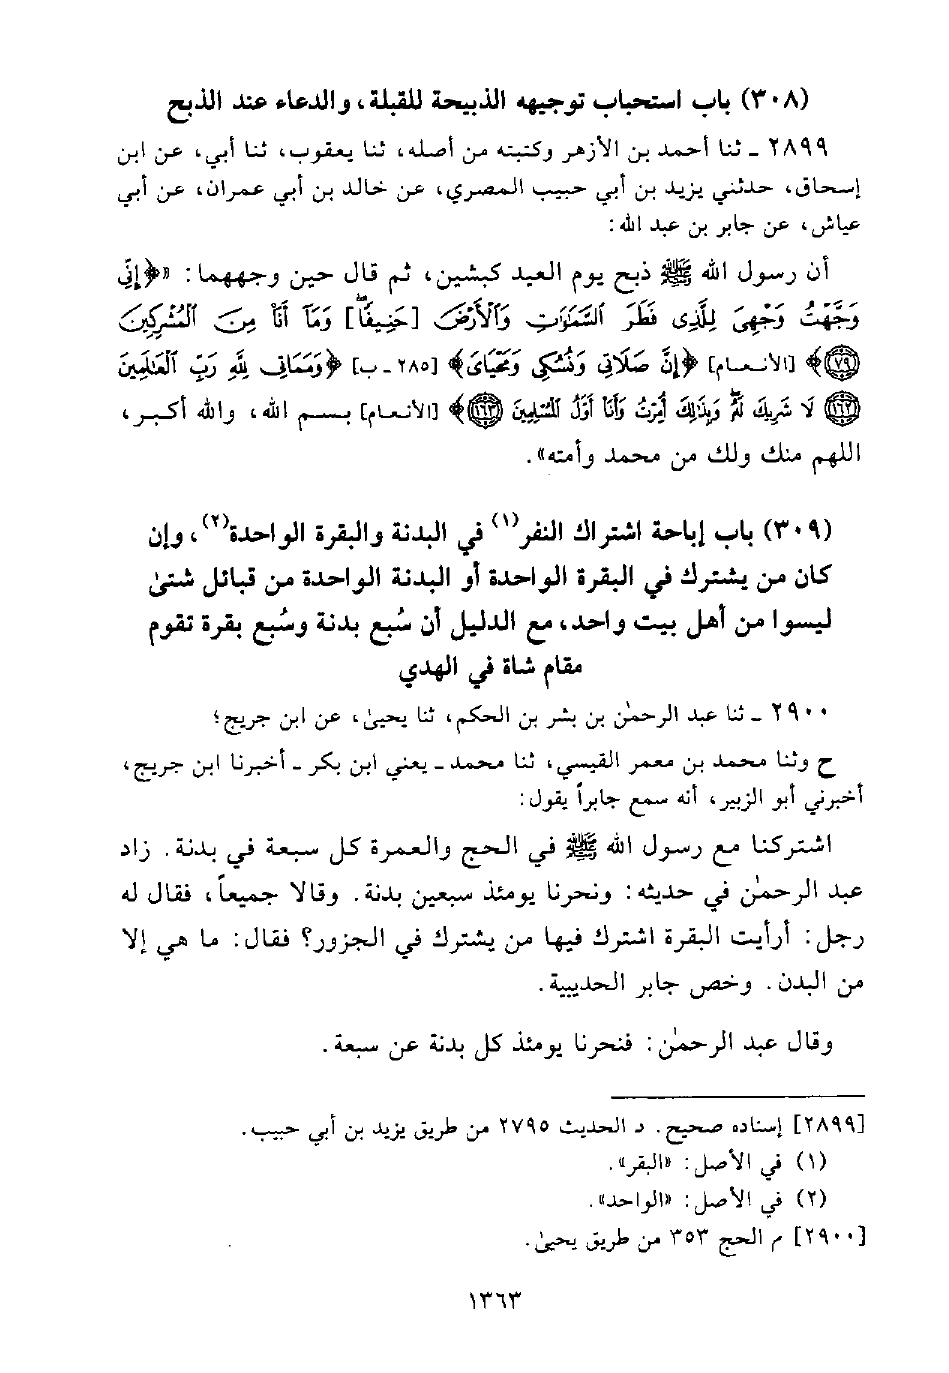 (٣٠٨) باب استحباب توجيهه الذبيحة للقبلة، والدعاء عند الذبح
٢٨٩٩ - ثنا أحمد بن الأزهر وكتبته من أصله، ثنا يعقوب، ثنا أبي، عن ابن
إسحاق، حدثني يزيد بن أبي حبيب المصري، عن خالد بن أبي عمران، عن أبي
عياش، عن جابر بن عبد الله:
أن رسول الله ﷺ ذبح يوم العيد كبشين، ثم قال حين وجههما: «﴿إِنِّي
وَجَّهْتُ وَجْهِيَ لِلَّذِي فَطَرَ السَّمَٰوَٰتِ وَالْأَرْضَ [حَنِيفًا] وَمَا أَنَا مِنَ الْمُشْرِكِينَ
(٧٩)﴾ [الأنعام] ﴿إِنَّ صَلَاتِي وَنُسُكِي وَمَحْيَايَ﴾ [٢٨٥ - ب] ﴿وَمَمَاتِي لِلَّهِ رَبِّ الْعَٰلَمِينَ
(١٦٢) لَا شَرِيكَ لَهُ وَبِذَٰلِكَ أُمِرْتُ وَأَنَا أَوَّلُ الْمُسْلِمِينَ (١٦٣)﴾ [الأنعام] بسم الله، والله أكبر،
اللهم منك ولك من محمد وأمته».
(٣٠٩) باب إباحة اشتراك النفر(١) في البدنة والبقرة الواحدة(٢)، وإن
كان من يشترك في البقرة الواحدة أو البدنة الواحدة من قبائل شتىٰ
ليسوا من أهل بيت واحد، مع الدليل أن سُبع بدنة وسُبع بقرة تقوم
مقام شاة في الهدي
٢٩٠٠ - ثنا عبد الرحمٰن بن بشر بن الحكم، ثنا يحيىٰ، عن ابن جريج؛
ح وثنا محمد بن معمر القيسي، ثنا محمد - يعني ابن بكر - أخبرنا ابن جريج،
أخبرني أبو الزبير، أنه سمع جابراً يقول:
اشتركنا مع رسول الله ﷺ في الحج والعمرة كل سبعة في بدنة. زاد
عبد الرحمٰن في حديثه: ونحرنا يومئذ سبعين بدنة. وقالا جميعاً، فقال له
رجل: أرأيت البقرة اشترك فيها من يشترك في الجزور؟ فقال: ما هي إلا
من البدن. وخص جابر الحديبية.
وقال عبد الرحمٰن: فنحرنا يومئذ كل بدنة عن سبعة.
[٢٨٩٩] إسناده صحيح. د الحديث ٢٧٩٥ من طريق يزيد بن أبي حبيب.
(١) في الأصل: «البقر».
(٢) في الأصل: «الواحد».
[٢٩٠٠] م الحج ٣٥٣ من طريق يحيىٰ.
١٣٦٣